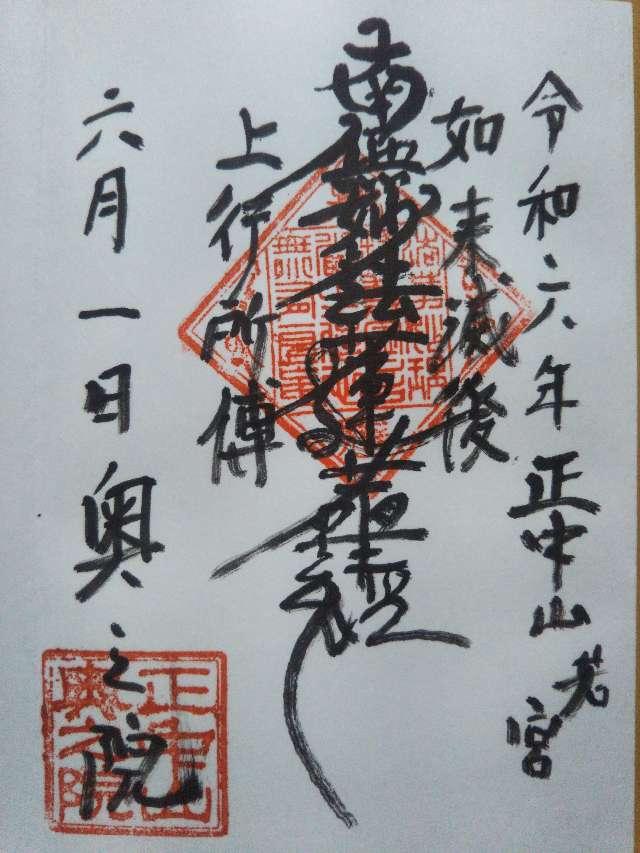 令和六年正中山若宮
如来滅後
南無妙法蓮華経
上行所傳
六月一日奥之院
正中山
奥之院